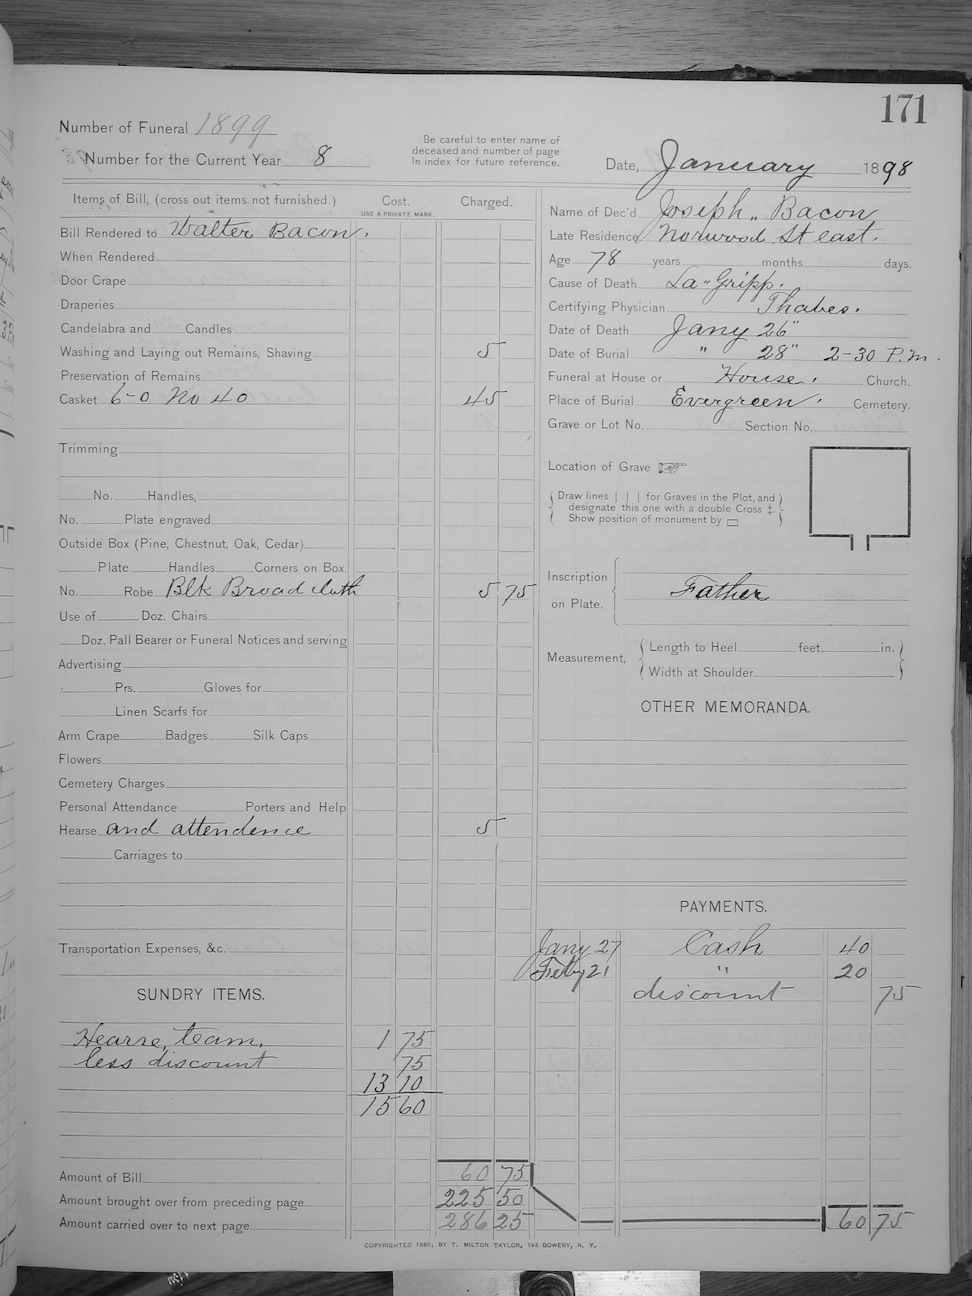 171
Number of Funeral 1899
Number for the Current Year 8
Be careful to enter name of
deceased and number of page
in index for future reference.
Date, January 1898
Items of Bill, (cross out items not furnished.) Cost. Charged.
USE A PRIVATE MARK.
Bill Rendered to Walter Bacon.
When Rendered
Door Crape
Draperies
Candelabra and Candles
Washing and Laying out Remains, Shaving 5
Preservation of Remains
Casket 6-0 No 40 45
Trimming
No. Handles,
No. Plate engraved
Outside Box (Pine, Chestnut, Oak, Cedar)
Plate Handles Corners on Box
No. Robe Blk Broad cluth 5 75
Use of Doz. Chairs
Doz. Pall Bearer or Funeral Notices and serving
Advertising
Prs. Gloves for
Linen Scarfs for
Arm Crape Badges Silk Caps
Flowers
Cemetery Charges
Personal Attendance Porters and Help
Hearse and attendence 5
Carriages to
Transportation Expenses, &c.
SUNDRY ITEMS.
Hearse, team. 1 75
less discount 75
13 10
15 60
Amount of Bill 60 75
Amount brought over from preceding page 225 50
Amount carried over to next page 286 25
Name of Dec'd Joseph.. Bacon
Late Residence Norwood St east.
Age 78 years months days.
Cause of Death La-Gripp.
Certifying Physician Thabes.
Date of Death Jany 26"
Date of Burial " 28" 2-30 P.m.
Funeral at House or House. Church.
Place of Burial Evergreen. Cemetery.
Grave or Lot No. Section No.
Location of Grave
Draw lines | | | for Graves in the Plot, and
designate this one with a double Cross ‡.
Show position of monument by ▭
Inscription
on Plate. Father
Measurement, Length to Heel feet in.
Width at Shoulder
OTHER MEMORANDA.
PAYMENTS.
Jany 27 Cash 40
Feby 21 " 20
discount 75
60 75
COPYRIGHTED 1890, BY T. MILTON TAYLOR, 183 BOWERY, N. Y.